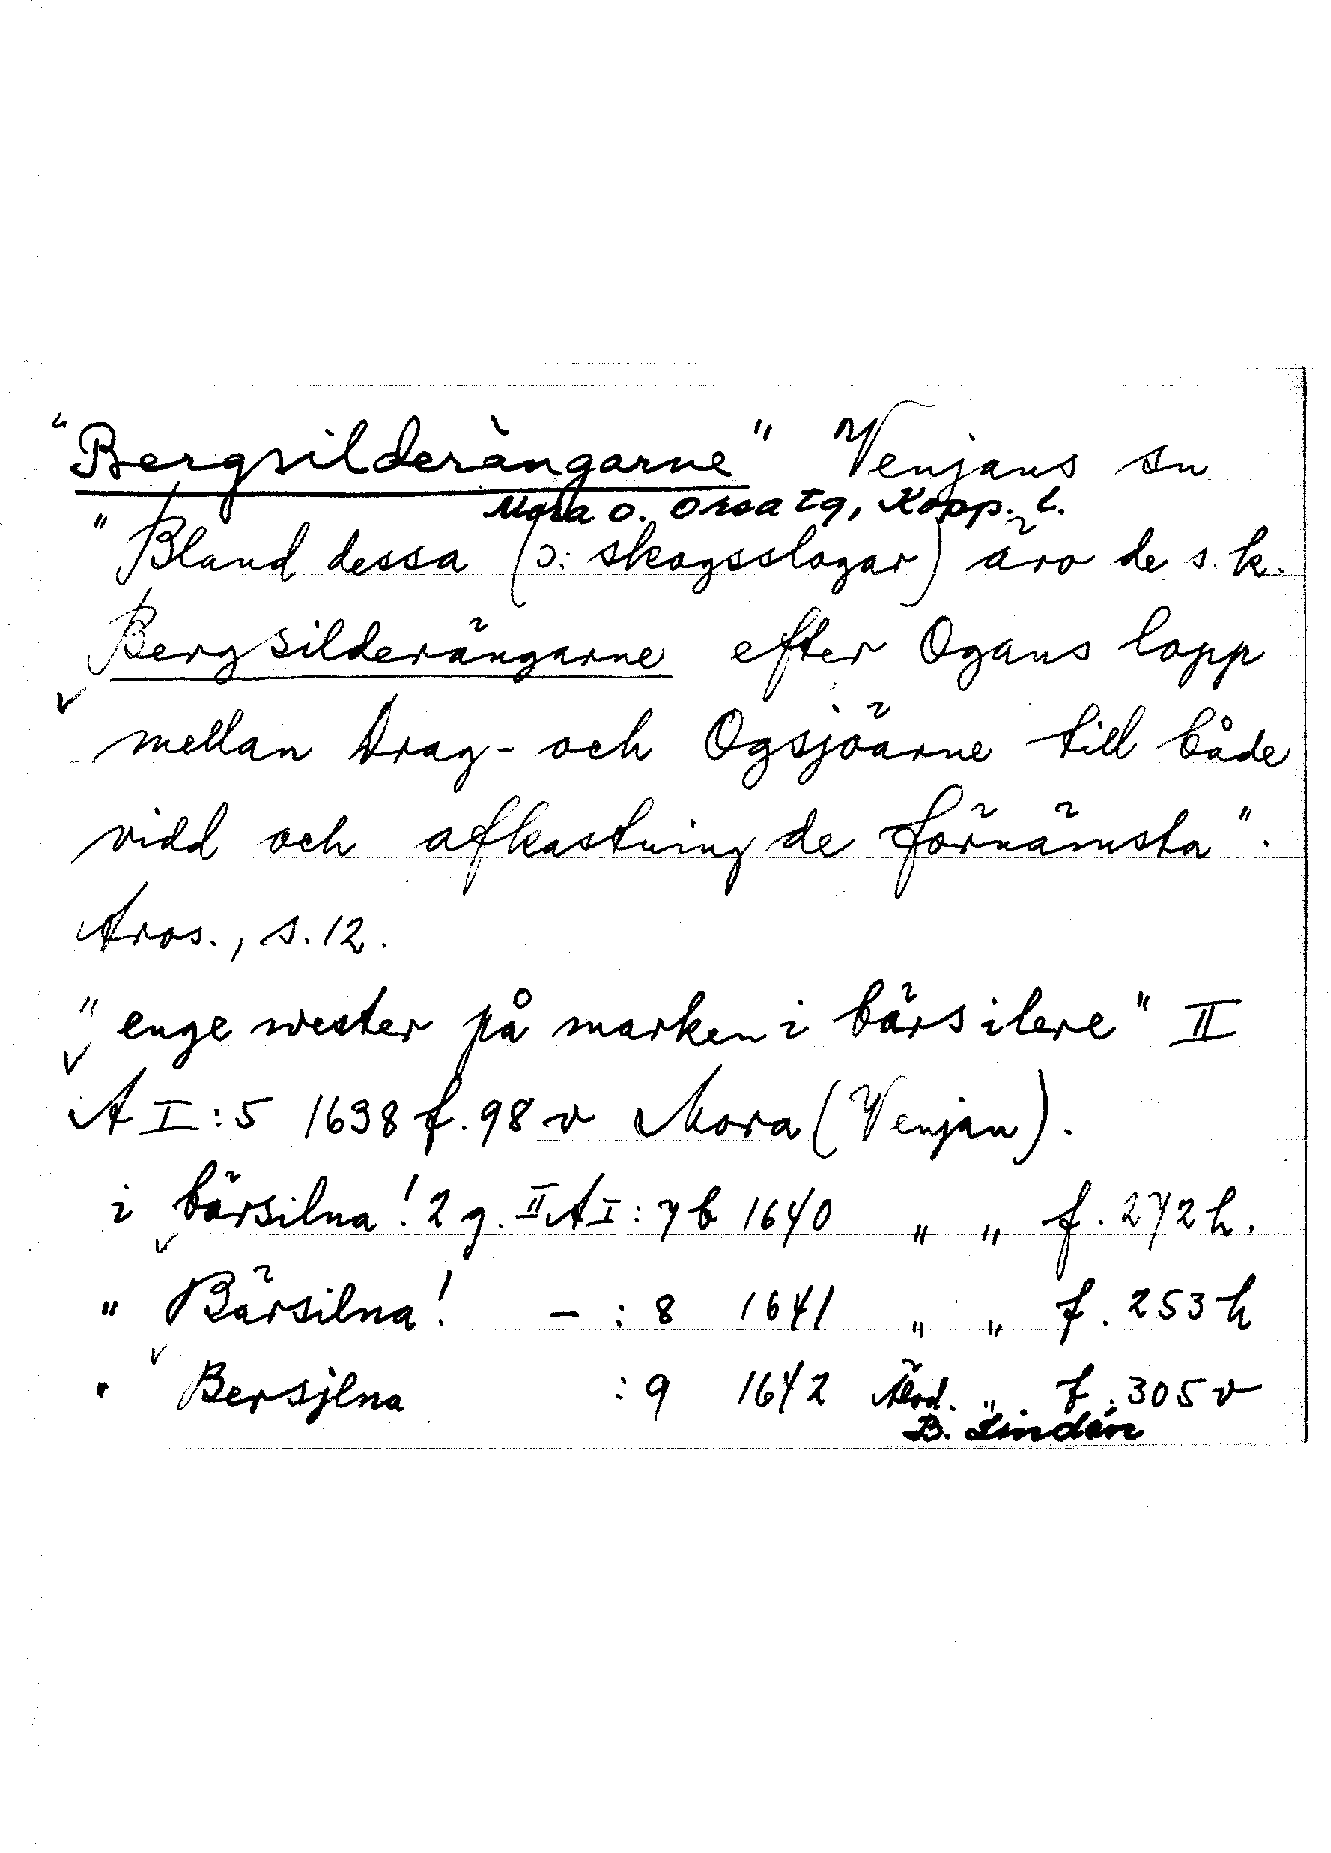 "Bergsilderängarne" Venjans sn
Mora o. Orsa tg, Kopp. l.
"Bland dessa (ɔ: skogsslogar) äro de s.k.
Bergsilderängarne efter Ogans lopp
mellan Drag- och Ogsjöarne till både
vidd och afkastning de förnämsta".
Aros., s. 12.
"enge wester på marken i bärsilere" II
A I:5 1638 f. 98 v Mora (Venjan).
i bärsilna! 2 g. II A I:7 b 1640 " " f. 272 h.
" Bärsilna! — :8 1641 " " f. 253 h
" Bersjlna :9 1642 " f. 305 v
B. Lindén